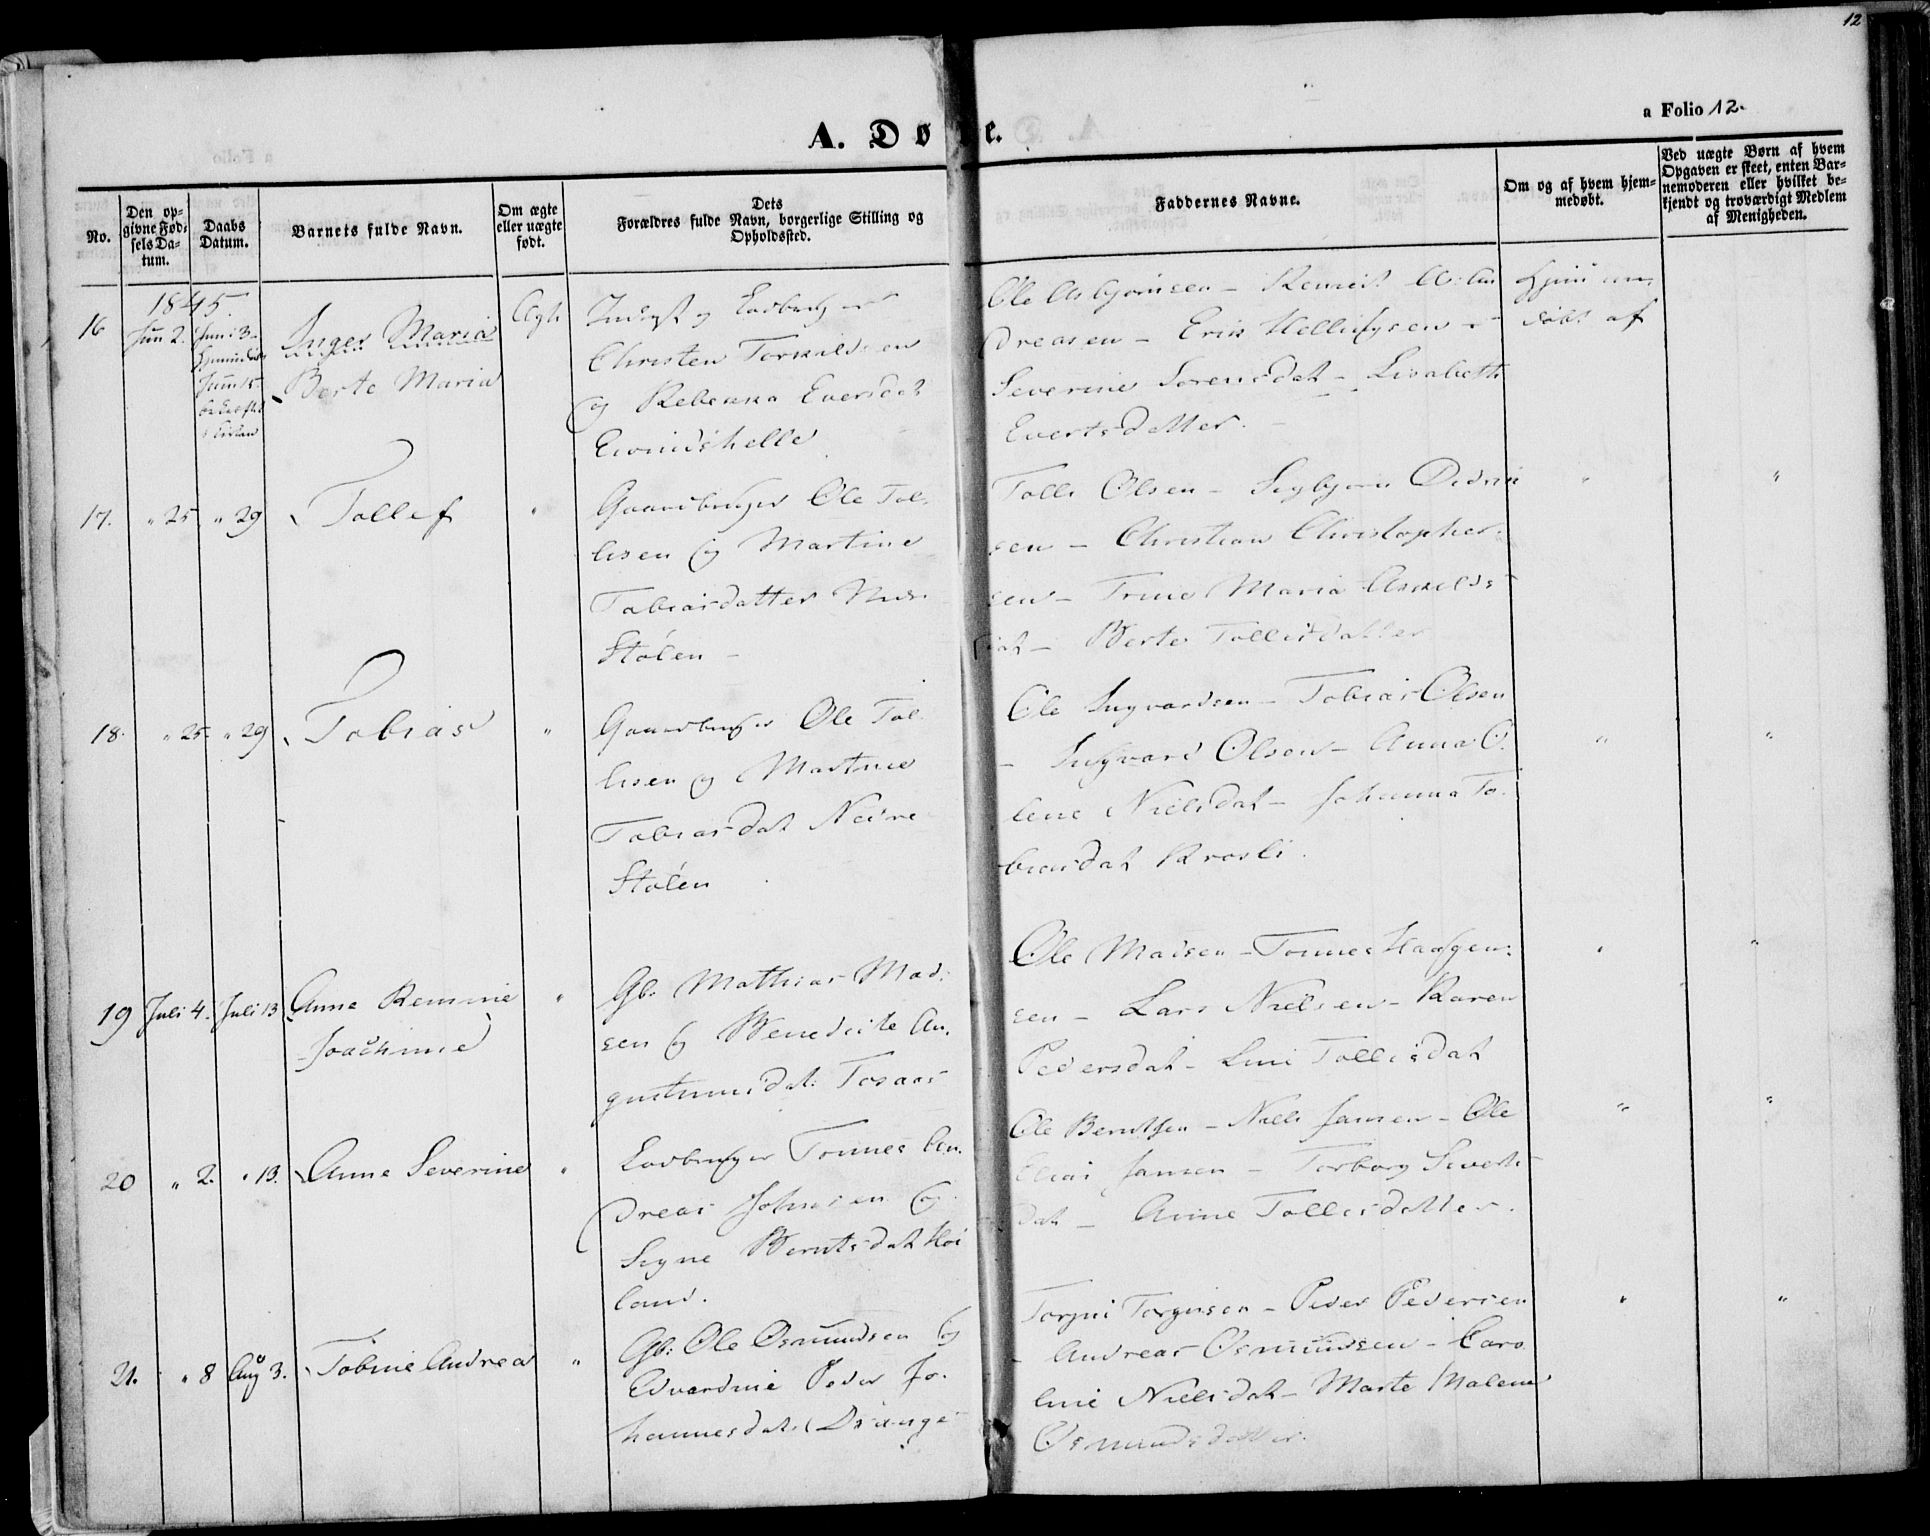 12
a Folio 12.
A. Dø e.
No.
Den op-
givne Fød-
sels Da-
tum.
Daabs
Datum.
Barnets fulde Navn.
Om ægte
eller uægte
født.
Dets
Forældres fulde Navn, borgerlige Stilling og
Opholdssted.
Faddernes Navne.
Om og af hvem hjem-
medøbt.
Ved uægte Børn af hvem
Opgaven er skeet, enten Bar-
nemoderen eller hvilket be-
kjendt og troværdigt Medlem
af Menigheden.
1845.
16
Juni 2.
Juni 3
Juni 15
Inger Maria
Berte Maria
Ægte
Inderst og
Christen Torkildsen
og Rebekka Eversdat
Eivindshelle
Ole Asbjørnsen - A. An
dreasen - Erik Helliesen -
Severine Sørensdat - Lisabeth
Evertsdatter.
Hjem
døbt af
17.
" 25
" 29
Tollef
"
Gaardbruger Ole Tol
lisen og Martine
Tobiasdatter
Stølen -
Tolli Olsen - Sigbjørn Didrik
sen - Christian Christopher-
sen - Trine Maria Askilds
dat - Berte Tollisdatter
"
"
18.
" 25.
" 29
Tobias
"
Gaardbruger Ole Tol
lisen og Martine
Tobiasdat Nedre
Stølen
Ole Ingvardsen - Tobias Olsen
- Ingvard Olsen - Anna O.
lene Nielsdat - Johanna To-
biasdat Krosli.
"
"
19
Juli 4.
Juli 13
Anne Remine
Joachime
"
Gb: Mathias Mad-
sen og Benedicte Au-
gustinusdat: Tosaas
Ole Madsen - Tonnes Haagen-
sen - Lars Nielsen - Karen
Pedersdat - Line Tollisdat
"
"
20
" 2.
" 13.
Anne Severine
"
Lodbruger Tonnes An.
dreas Johnsen og
Signe Berntsdat Høi
land.
Ole Berntsen - Niels Jansen - Ole
Elias Jansen - Torborg Siverts
dat - Anne Tollisdatter.
"
"
21.
" 8
Aug 3.
Tobine Andrea
"
Gb: Ole Osmundsen og
Edvardine Peder Jo-
hannesdat: Drange
Torjus Torjusen - Peder Pedersen
- Andreas Osmundsen - Caro
line Nielsdat - Marte Malene
Osmundsdatter.
"
"